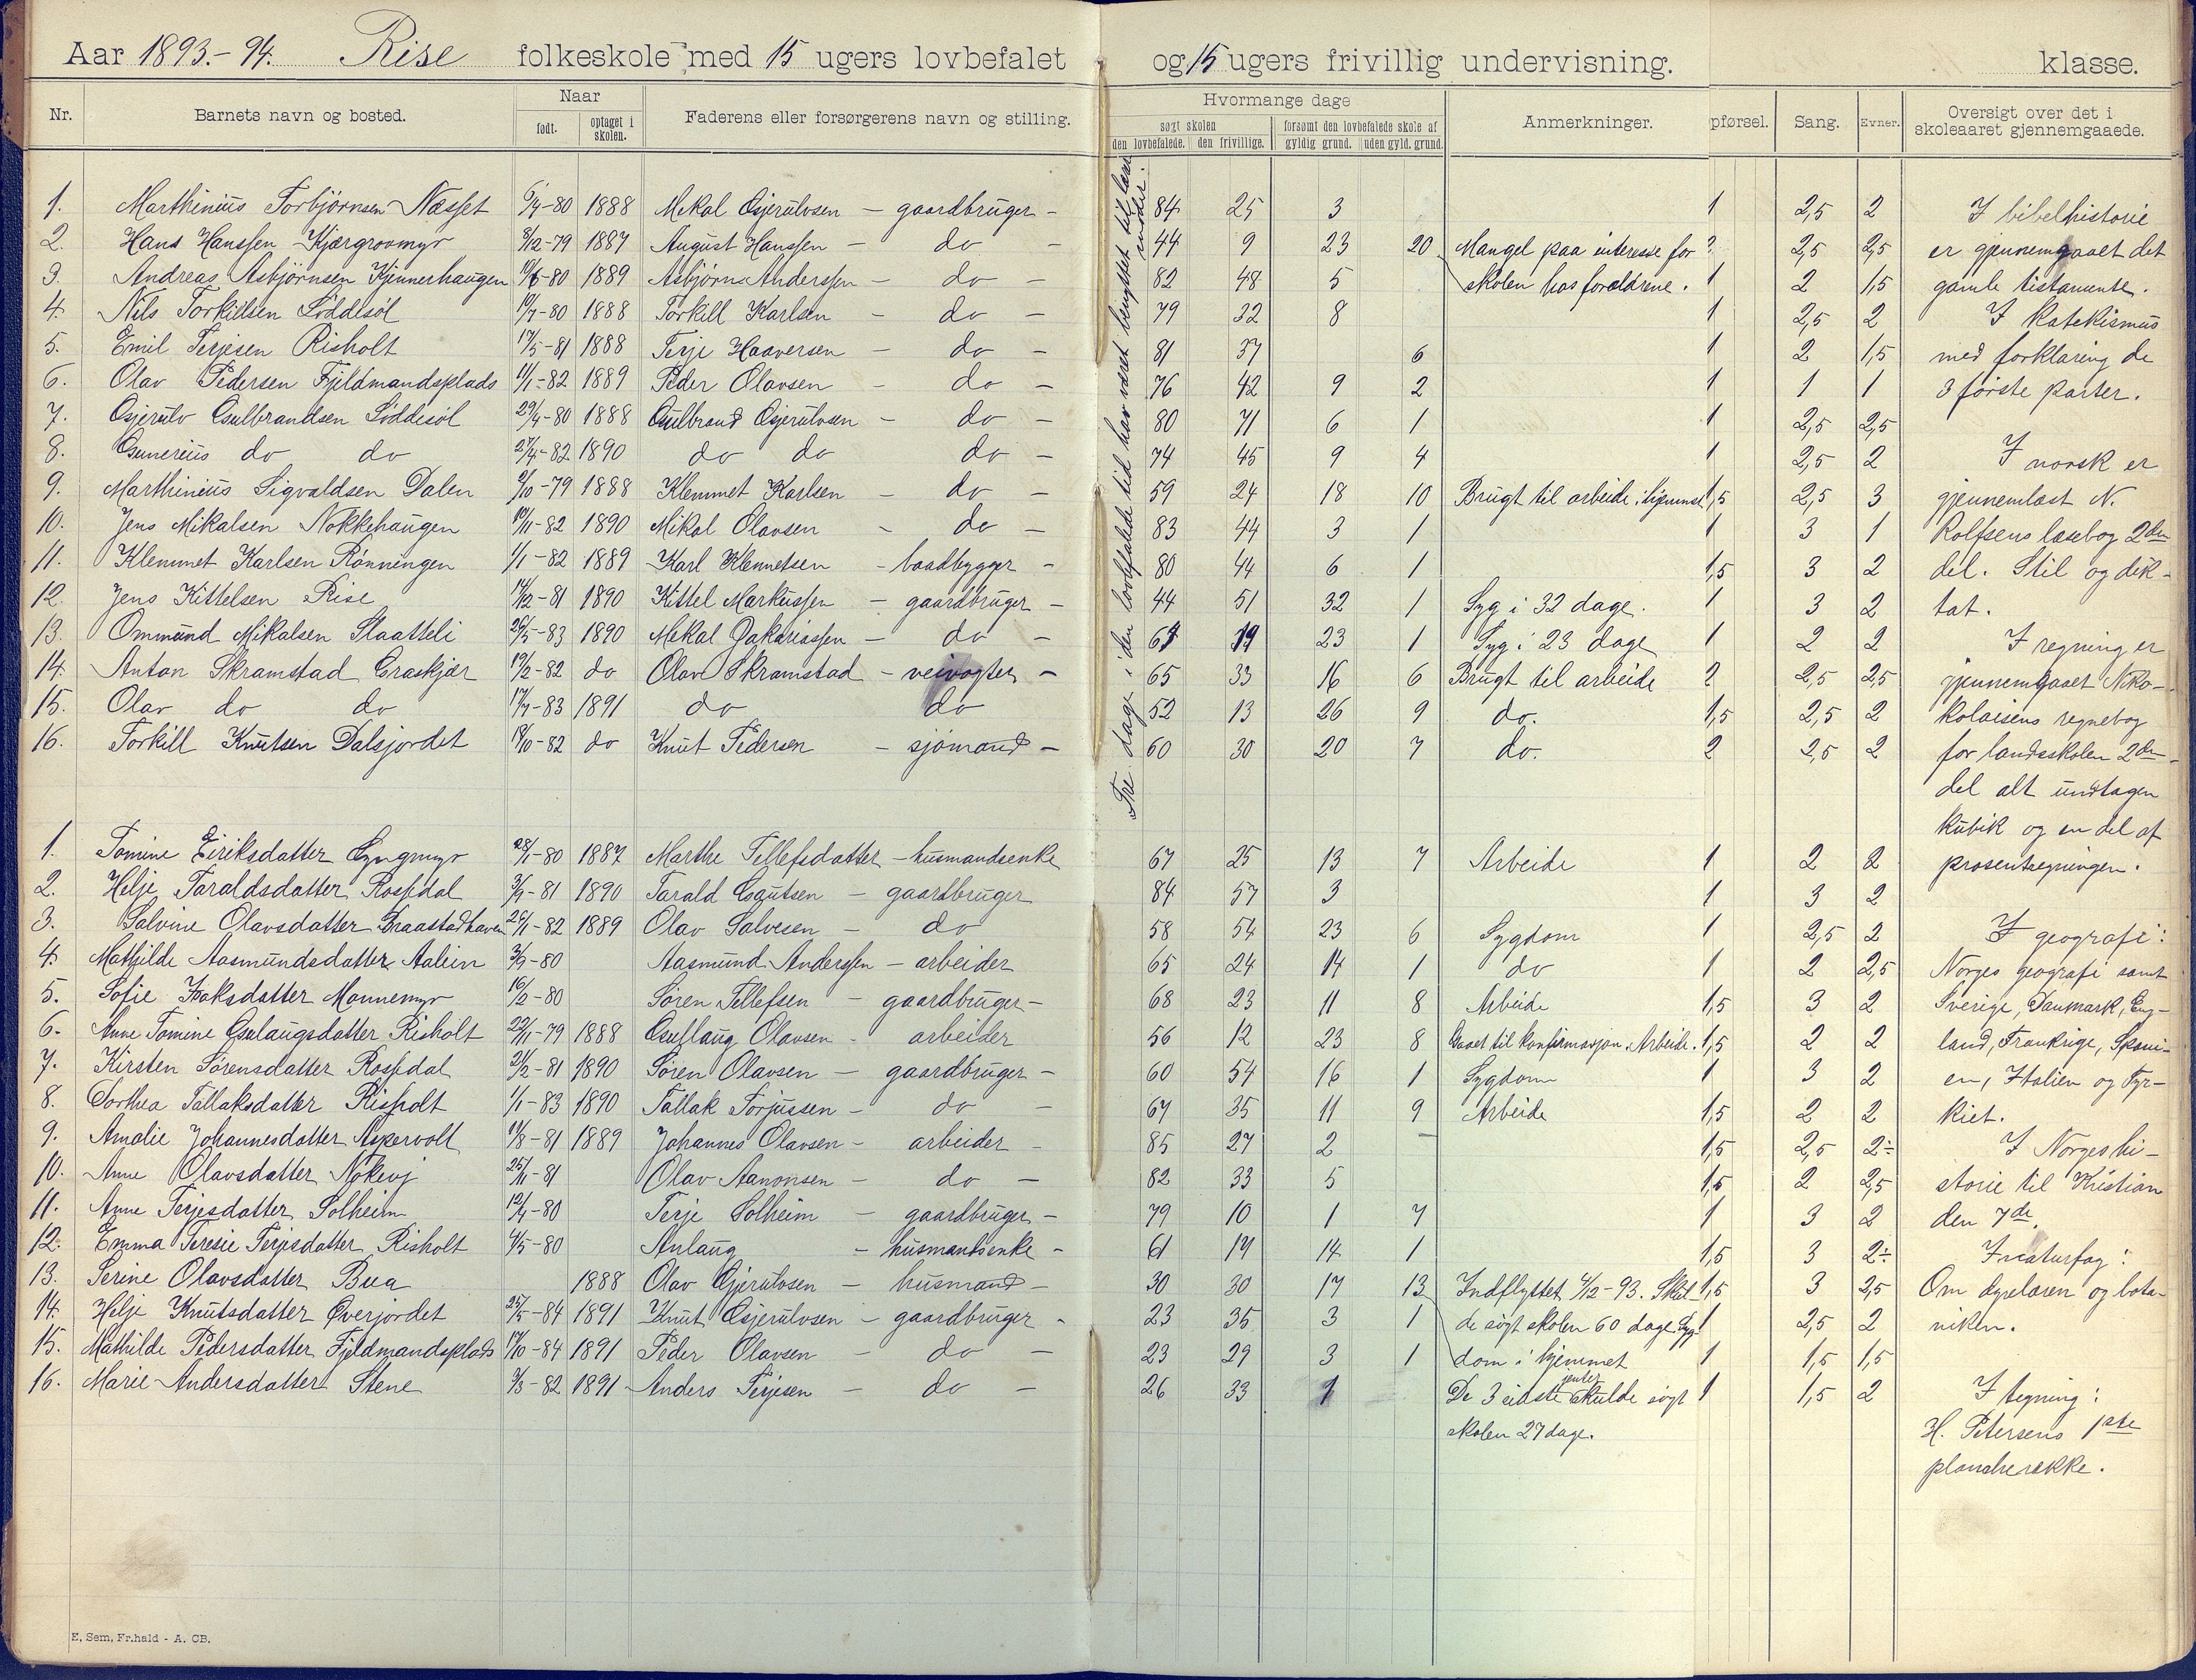 Aar 1893.-94. Rise folkeskole med 15 ugers lovbefalet og 15 ugers frivillig undervisning. klasse.
Nr. Barnets navn og bosted. Naar født. optaget i skolen. Faderens eller forsørgerens navn og stilling. Hvormange dage søgt skolen den lovbefalede. den frivillige. forsømt den lovbefalede skole af gyldig grund. uden gyld. grund. Anmerkninger. pførsel. Sang. Evner. Oversigt over det i skoleaaret gjennemgaaede.
Tre dage i den lovbefalede tid har været benyttet til lærermøder.
1. Marthinius Torbjörnsen Næsset 6/4-80 1888 Mikal Gjerulvsen - gaardbruger - 84 25 3 1 2,5 2 I bibelhistorie
2. Hans Hanssen Kjærgrovmyr 8/12-79 1887 August Hanssen - do - 44 9 23 20 Mangel paa interesse for 2,5 2,5 er gjennemgaaet det
3. Andreas Asbjörnsen Kjennerhaugen 10/6-80 1889 Asbjörn Anderssen - do - 82 48 5 skolen hos forældrene. 1 2 1,5 gamle testamente.
4. Nils Torkildsen Löddesöl 10/7-80 1888 Torkill Karlsen - do - 79 32 8 1 2,5 2 I katekismus
5. Emil Terjesen Risholt 17/5-81 1888 Terje Haaversen - do - 81 37 6 1 2 1,5 med forklaring de
6. Olav Pedersen Fjeldmandsplads 11/1-82 1889 Peder Olavsen - do - 76 42 9 2 1 1 1 3 förste parter.
7. Gjerulv Gulbrandsen Löddesöl 29/4-80 1888 Gulbrand Gjerulvsen - do - 80 71 6 1 1 2,5 2,5
8. Gunerius do do 27/4-82 1890 do do do - 74 45 9 4 1 2,5 2 I norsk er
9. Marthinius Sigvaldsen Dalen 9/10-79 1888 Klemmet Karlsen - do - 59 24 18 10 Brugt til arbeide. 1,5 2,5 3 gjennemlæst N.
10. Jens Mikalsen Nokkehaugen 10/11-82 1890 Mikal Olavsen - do - 83 44 3 1 1 3 1 Rolfsens læsebog 2den
11. Klemmet Karlsen Rönningen 1/1-82 1889 Karl Klemmetsen - baadbygger - 80 44 6 1 1,5 3 2 del. Stil og dik-
12. Jens Kittelsen Rise 14/12-81 1890 Kittel Markussen - gaardbruger - 44 51 32 1 Syg i 32 dage. 1 3 2 tat.
13. Ommund Mikalsen Slaatteli 26/5-83 1890 Mikal Zakariassen - do - 64 19 23 1 Syg i 23 dage 1 2 2 I regning er
14. Anton Skramstad Graskjær 19/2-82 do Olav Skramstad - veivogter - 65 33 16 6 Brugt til arbeide 2 2,5 2,5 gjennemgaaet Niko-
15. Olav do do 17/7-83 1891 do do 52 13 26 9 do. 1,5 2,5 2 kolaisens regnebog
16. Torkill Knutsen Dalsjordet 18/10-82 do Knut Pedersen - sjömand - 60 30 20 7 do. 2 2,5 2 for landsskolen 2den
del alt undtagen
kubik og en del af
1. Tomine Eiriksdatter Lyngmyr 28/1-80 1887 Marthe Tellefsdatter - husmandsenke 67 25 13 7 Arbeide 1 2 2 prosentregningen.
2. Helje Taraldsdatter Rosedal 3/9-81 1890 Tarald Gautsen - gaardbruger 84 57 3 1 3 2
3. Salvine Olavsdatter Braastadhaven 26/1-82 1889 Olav Salvesen - do 58 54 23 6 Sygdom 1 2,5 2 I geografi:
4. Mathilde Aasmundsdatter Aalien 3/9-80 Aasmund Anderssen - arbeider 65 24 14 1 do 1 2 2,5 Norges geografi samt
5. Sofie Isaksdatter Monnemyr 16/2-80 Sören Tellefsen - gaardbruger - 68 23 11 8 Arbeide 1,5 3 2 Sverige, Danmark, Eng-
6. Anne Tomine Gulaugsdatter Risholt 22/11-79 1888 Gullaug Olavsen - arbeider 56 12 23 8 Gaaet til konfirmasjon. Arbeide. 1,5 2 2 land, Frankrige, Spani-
7. Kirsten Sörensdatter Rosedal 21/2-81 1890 Sören Olavsen - gaardbruger - 60 54 16 1 Sygdom 1 3 2 en, Italien og Tyr-
8. Dorthea Tallaksdatter Risholt 1/1-83 1890 Tallak Torjussen - do - 67 35 11 9 Arbeide 1,5 2 2 kiet.
9. Amalie Johannesdatter Aspervolt 11/8-81 1889 Johannes Olavsen - arbeider - 85 27 2 - 1,5 2,5 2÷ I Norges hi-
10. Anne Olavsdatter Nökevj 25/11-81 Olav Aanonsen - do - 82 33 5 1,5 2 2,5 storie til Kristian
11. Anne Terjesdatter Solheim 12/4-80 Terje Solheim - gaardbruger - 79 10 1 7 1 3 2 den 7de.
12. Emma Teresie Terjesdatter Risholt 4/5-80 Anlaug - husmandsenke - 61 17 14 1 1,5 3 2÷ I naturfag:
13. Serine Olavsdatter Bua 1888 Olav Gjerulvsen - husmand - 30 30 17 13 Indflyttet 4/12-93. Skul 1,5 3 2,5 Om dyrelæren og bota-
14. Helje Knutsdatter Överjordet 25/5-84 1891 Knut Gjerulvsen - gaardbruger - 23 35 3 1 de sögt skolen 60 dage. Syg- 1 2,5 2 niken.
15. Mathilde Pedersdatter Fjeldmandsplads 17/10-84 1891 Peder Olavsen - do - 23 29 3 1 dom i hjemmet 1 1,5 1,5
16. Marie Andersdatter Stene 9/3-82 1891 Anders Terjesen - do - 26 33 1 De 3 sidste jenter skulde sögt 1 1,5 2 I tegning:
skolen 27 dage. H. Petersens 1ste
plancherække.
E. Sem, Fr.hald - A. CB.